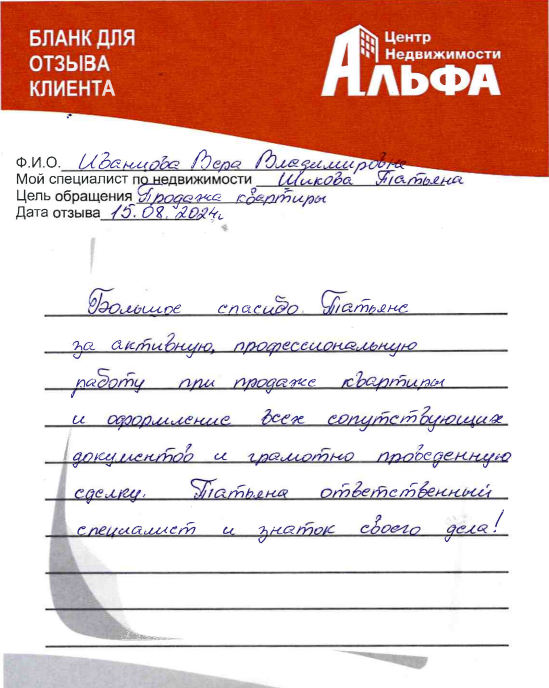 БЛАНК ДЛЯ
ОТЗЫВА
КЛИЕНТА
Центр
Недвижимости
АЛЬФА
Ф.И.О. Иванцова Вера Владимировна
Мой специалист по недвижимости Шикова Татьяна
Цель обращения Продажа квартиры
Дата отзыва 15.08.2024г.
Большое спасибо Татьяне
за активную, профессиональную
работу при продаже квартиры
и оформление всех сопутствующих
документов и грамотно проведенную
сделку. Татьяна ответственный
специалист и знаток своего дела!